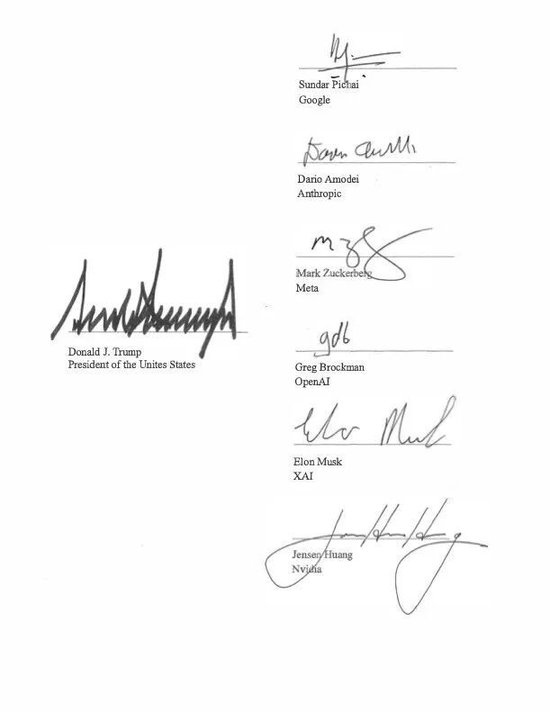 Sundar Pichai
Google
Dario Amodei
Anthropic
Mark Zuckerberg
Meta
Donald J. Trump
President of the Unites States
gdb
Greg Brockman
OpenAI
Elon Musk
Elon Musk
XAI
Jensen Huang
Nvidia